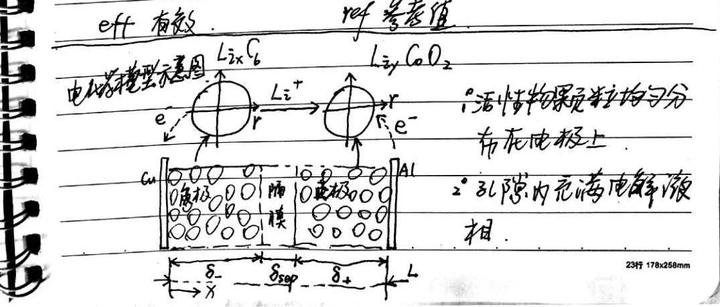 eff 有效. ref 参考值
电化学模型示意图
LixC6 LiyCoO2
Li+
r r
e- e-
1° 活性物颗粒均匀分
布在电极上
Cu 负极 隔膜 正极 Al
2° 孔隙内充满电解液
相.
23行 178x258mm
δ- δsep δ+ L
x